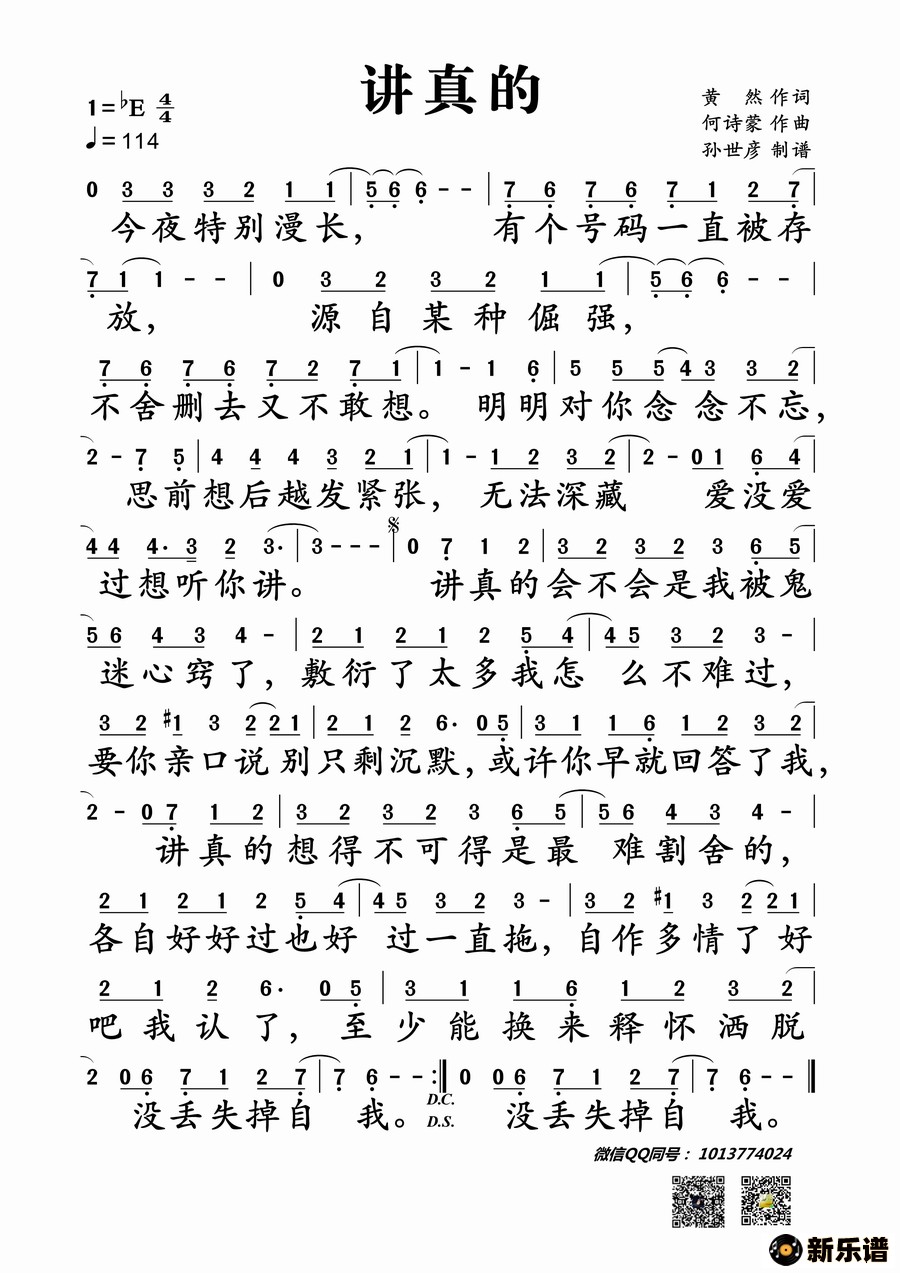 讲真的
1=♭E 4/4
♩=114
黄 然 作词
何诗蒙 作曲
孙世彦 制谱
0 3 3 3 2 1 1 | 5 6 6 - - | 7 6 7 6 7 1 2 7 |
今夜特别漫长， 有个号码一直被存
7 1 1 - - | 0 3 2 3 2 1 1 | 5 6 6 - - |
放， 源自某种倔强，
7 6 7 6 7 2 7 1 | 1 - 1 6 | 5 5 5 4 3 3 2 |
不舍删去又不敢想。 明明对你念念不忘，
2 - 7 5 | 4 4 4 3 2 1 | 1 - 1 2 3 2 | 2 - 0 1 6 4 |
思前想后越发紧张， 无法深藏 爱没爱
4 4 4· 3 2 3· | 3 - - - | 0 7 1 2 | 3 2 3 2 3 6 5 |
过想听你讲。 讲真的会不会是我被鬼
5 6 4 3 4 - | 2 1 2 1 2 5 4 | 4 5 3 2 3 - |
迷心窍了，敷衍了太多我怎 么不难过，
3 2 #1 3 2 2 1 | 2 1 2 6· 0 5 | 3 1 1 6 1 2 3 2 |
要你亲口说别只剩沉默，或许你早就回答了我，
2 - 0 7 1 2 | 3 2 3 2 3 6 5 | 5 6 4 3 4 - |
讲真的想得不可得是最 难割舍的，
2 1 2 1 2 5 4 | 4 5 3 2 3 - | 3 2 #1 3 2 2 1 |
各自好好过也好 过一直拖，自作多情了好
2 1 2 6· 0 5 | 3 1 1 6 1 2 3 2 |
吧我认了，至少能换来释怀洒脱
2 0 6 7 1 2 7 | 7 6 - - :| 0 0 6 7 1 2 7 | 7 6 - - ||
没丢失掉自 我。 D.C. D.S. 没丢失掉自 我。
微信QQ同号：1013774024
新乐谱